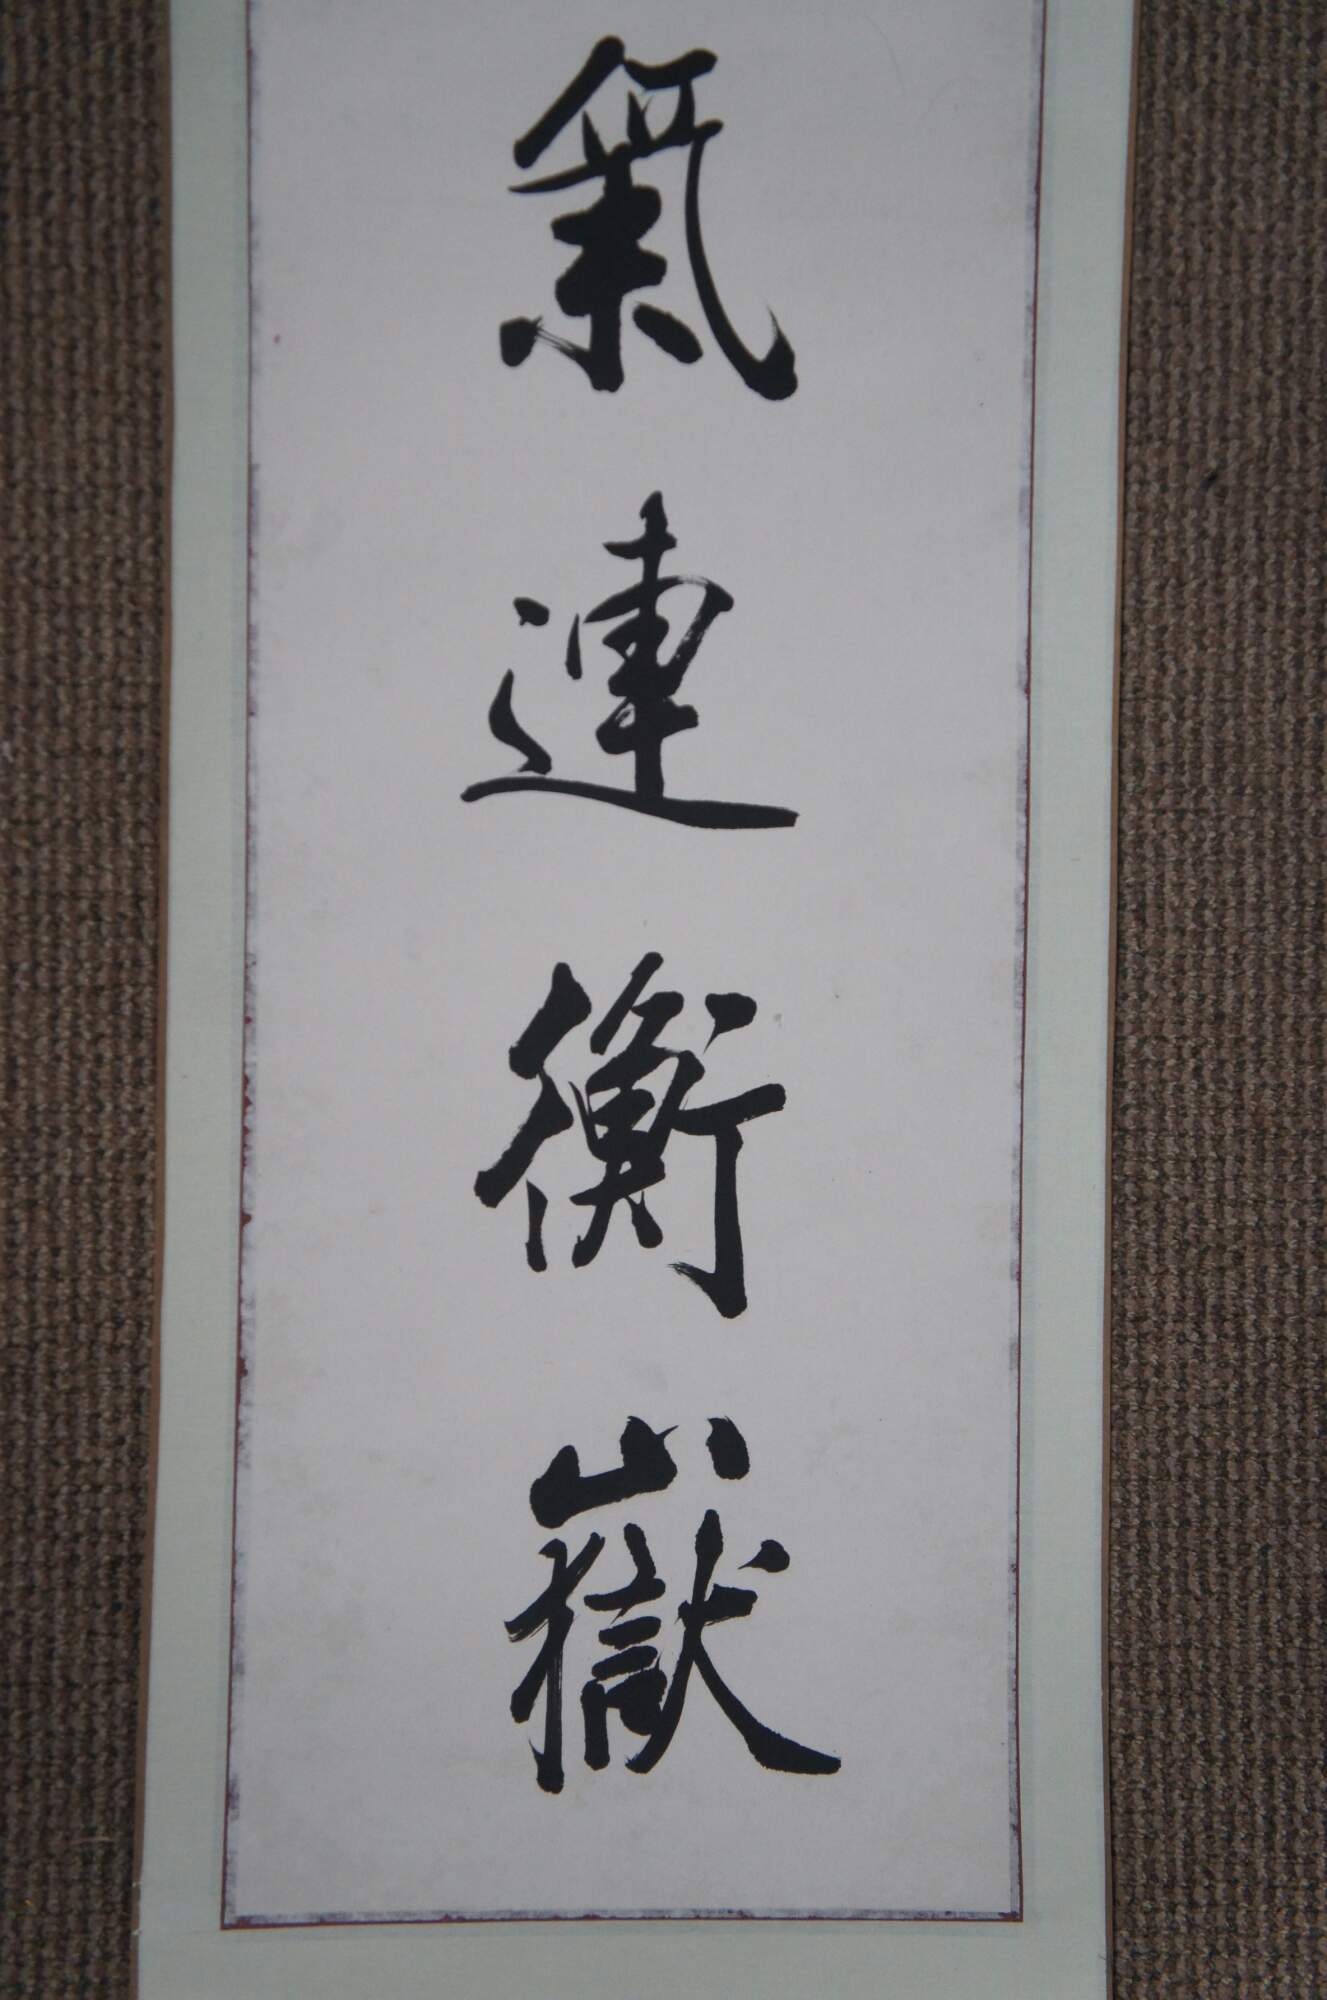 氣連衡嶽